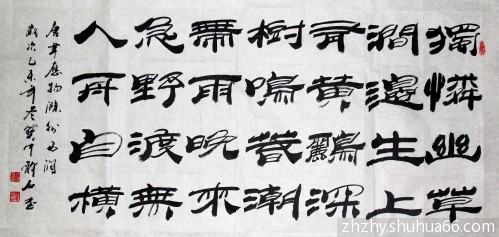 獨憐幽草
澗邊生上
有黄鸝深
樹鳴春潮
帶雨晚來
急野渡無
人舟自橫
唐韋應物滁州西澗
歲次乙未年
zhzhy.shuhua66.com